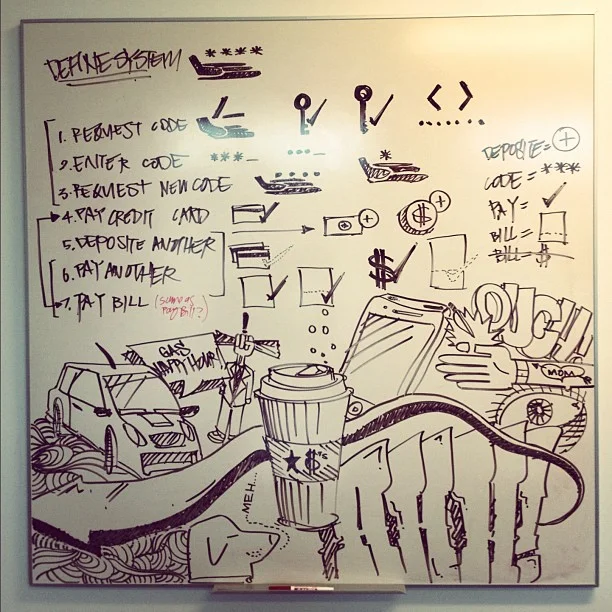 DEFINE SYSTEM ****
1. REQUEST CODE < >
2. ENTER CODE ***_
3. REQUEST NEW CODE *
4. PAY CREDIT CARD + $ +
5. DEPOSITE ANOTHER
6. PAY ANOTHER $
7. PAY BILL (SAME AS PAY BILL?)
DEPOSITE = +
CODE = ***
PAY = ✓
BILL =
BILL = $
GAS HAPPY HOUR!
OUCH!
MOM
★$'S
MEH...